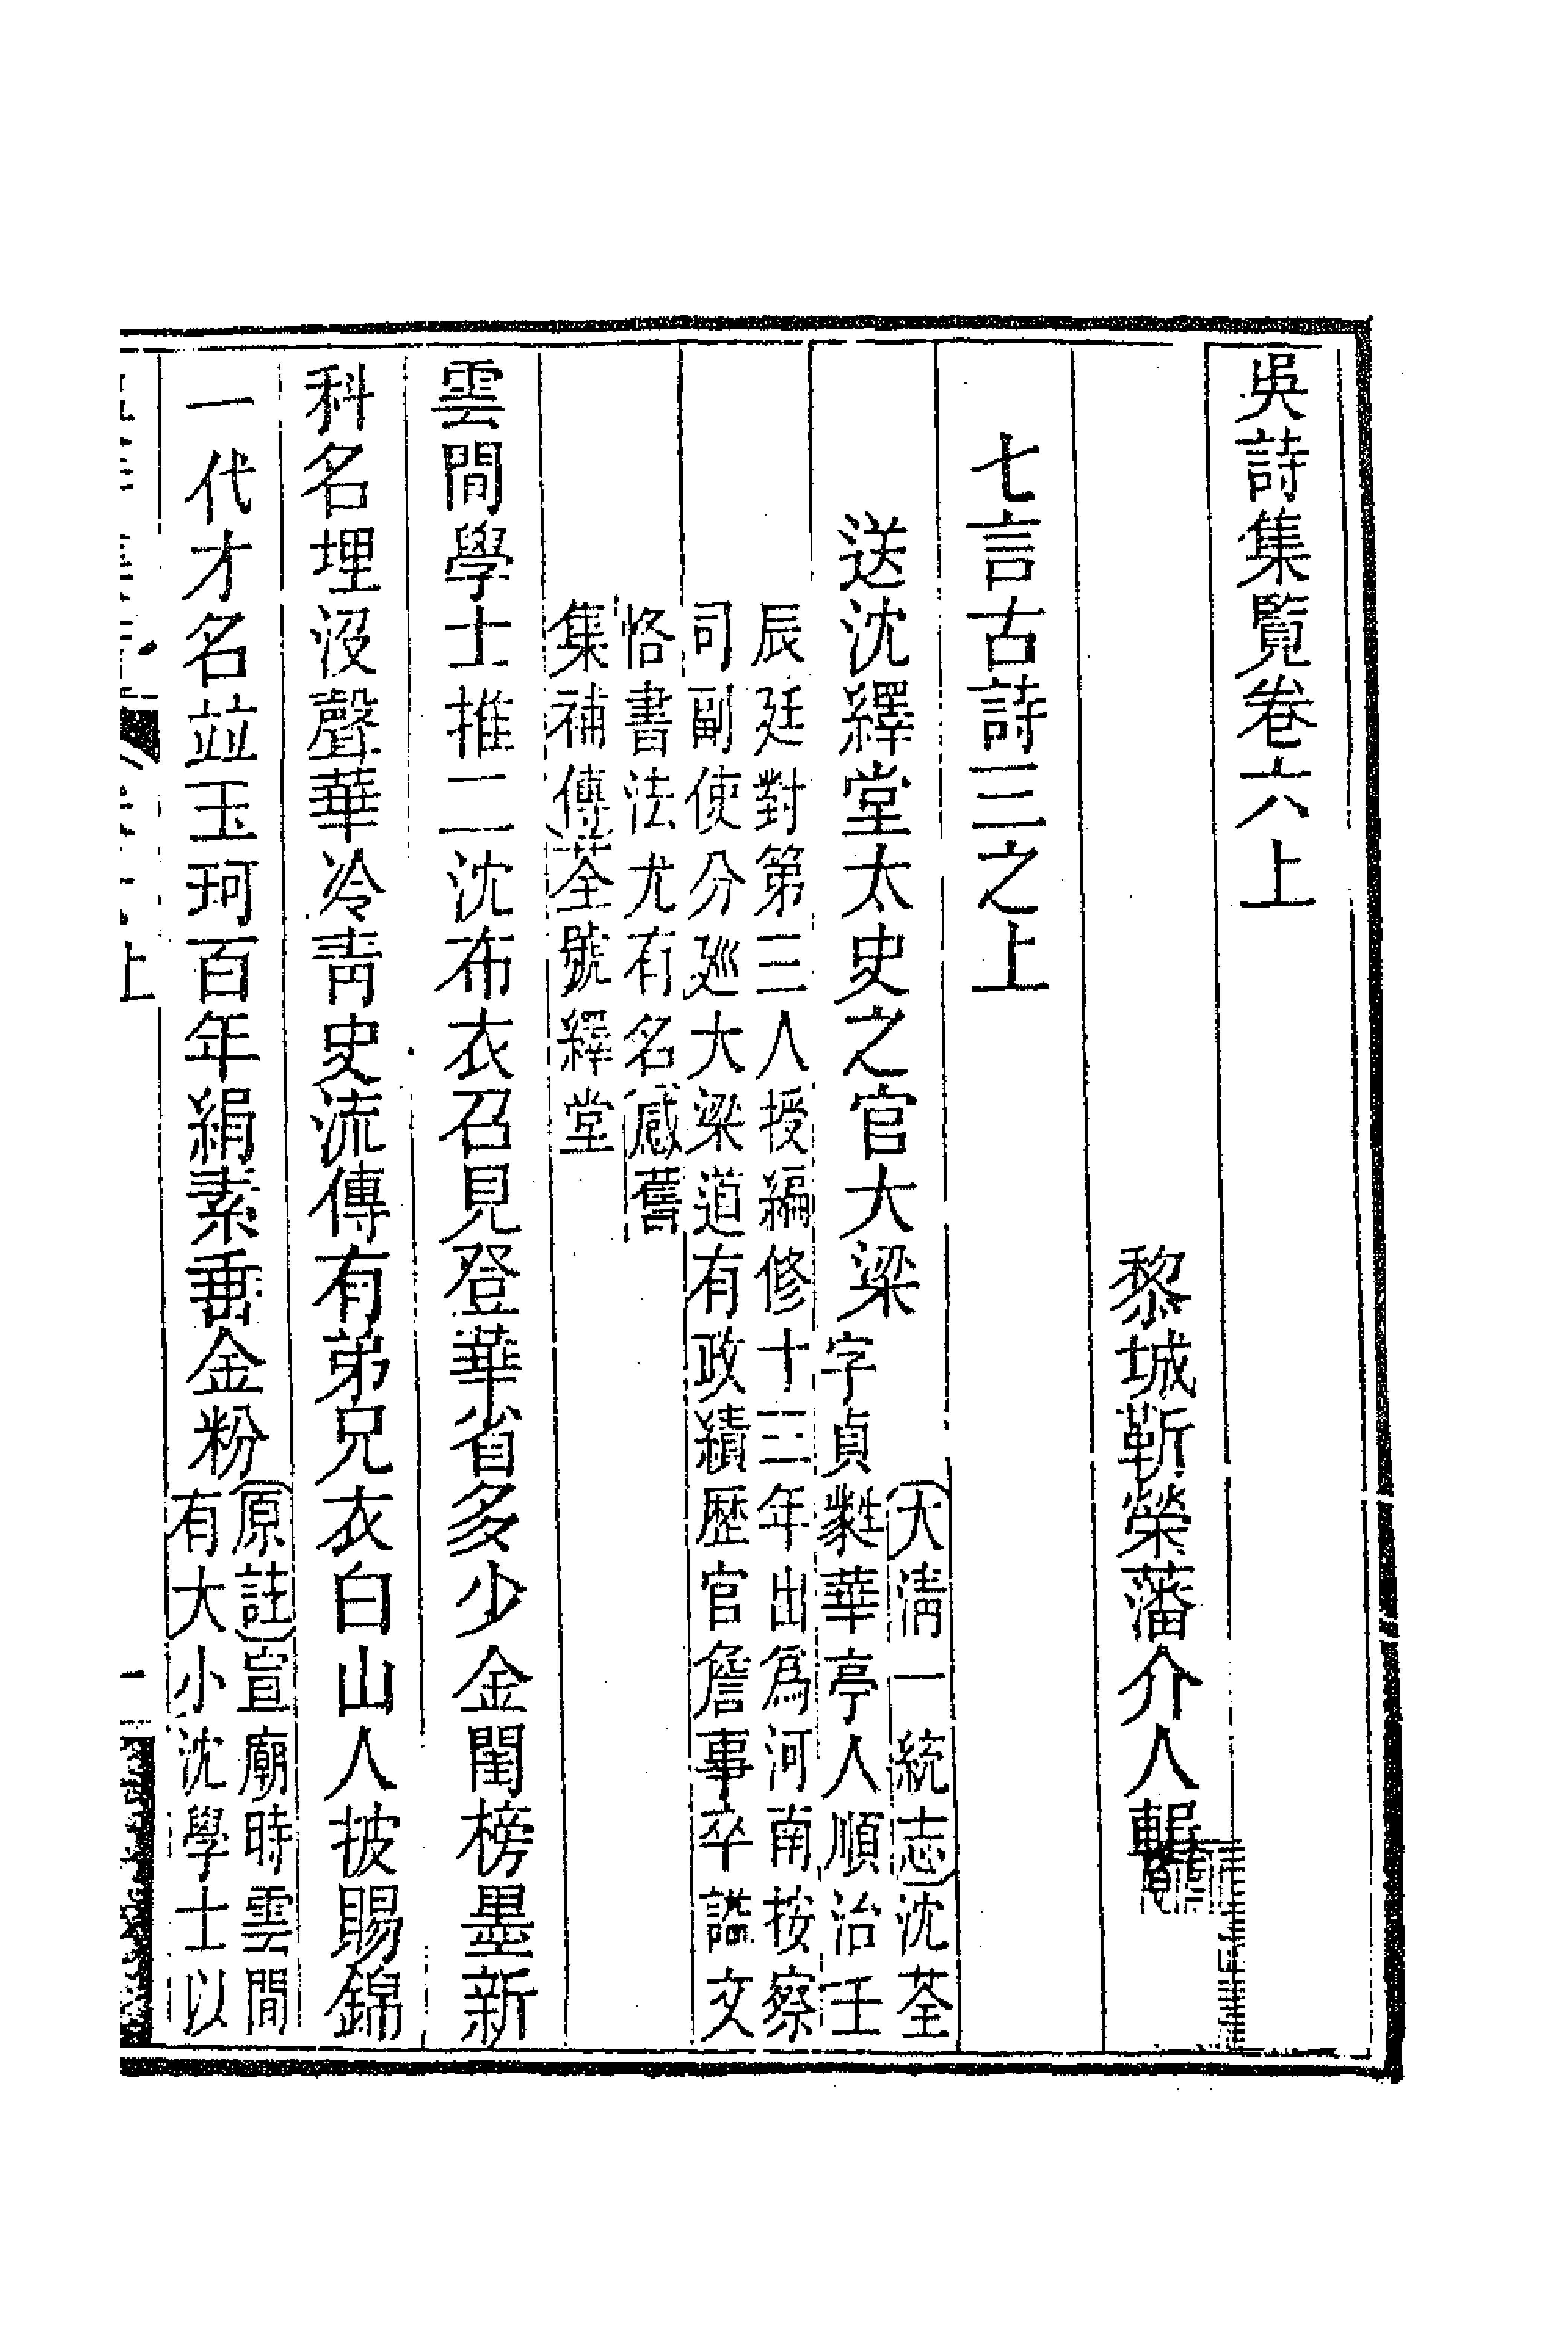 吳詩集覽卷六上
黎城靳榮藩介人輯
七言古詩三之上
送沈繹堂太史之官大梁
大清一統志沈荃
字貞蕤華亭人順治壬
辰廷對第三人授編修十三年出爲河南按察
司副使分廵大梁道有政績歷官詹事卒諡文
恪書法尤有名感舊
集補傳荃號繹堂
雲間學士推二沈布衣召見登華省多少金閨榜墨新
科名埋沒聲華冷靑史流傳有弟兄衣白山人披賜錦
一代才名竝玉珂百年絹素垂金粉
原註宣廟時雲間
有大小沈學士以